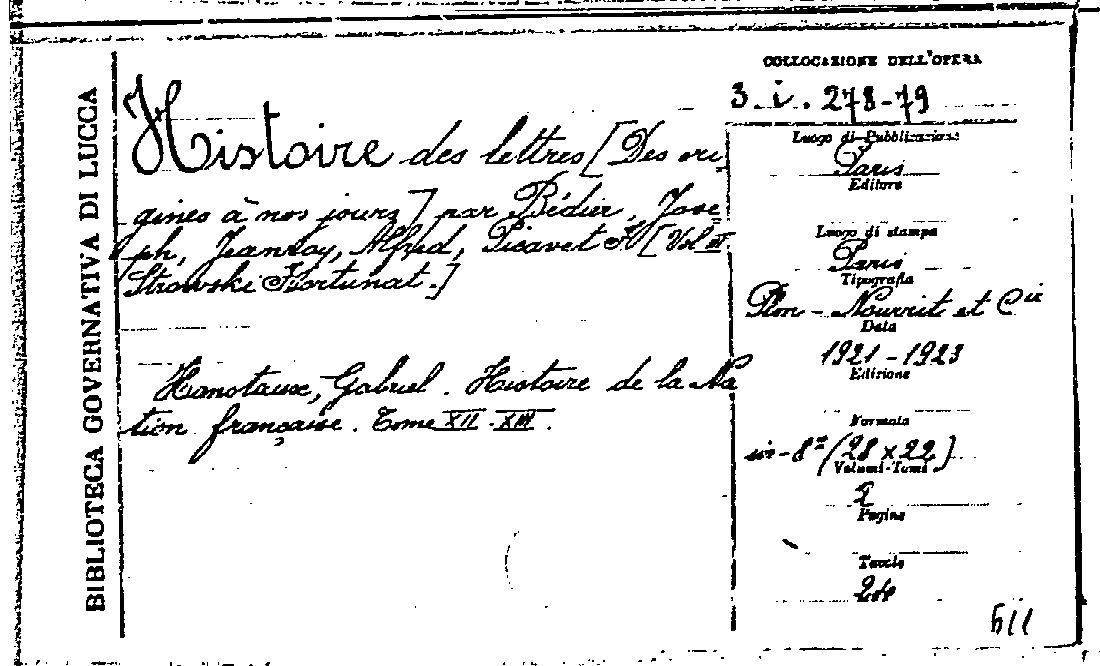 BIBLIOTECA GOVERNATIVA DI LUCCA
Histoire des lettres [Des ori
gines à nos jours] par Bédier, Jose
ph, Jeanroy, Alfred, Picavet F [Vol II.
Strowski Fortunat.]
Hanotaux, Gabriel. Histoire de la Na
tion française. Tome XII - XIII.
COLLOCAZIONE DELL'OPERA
3. i. 278-79
Luogo di Pubblicazione
Paris
Editore
Luogo di stampa
Paris
Tipografia
Plon - Nourrit et Cie
Data
1921-1923
Edizione
Formato
in-8° (28 x 22)
Volumi-Tomi
2
Pagine
Tavole
611